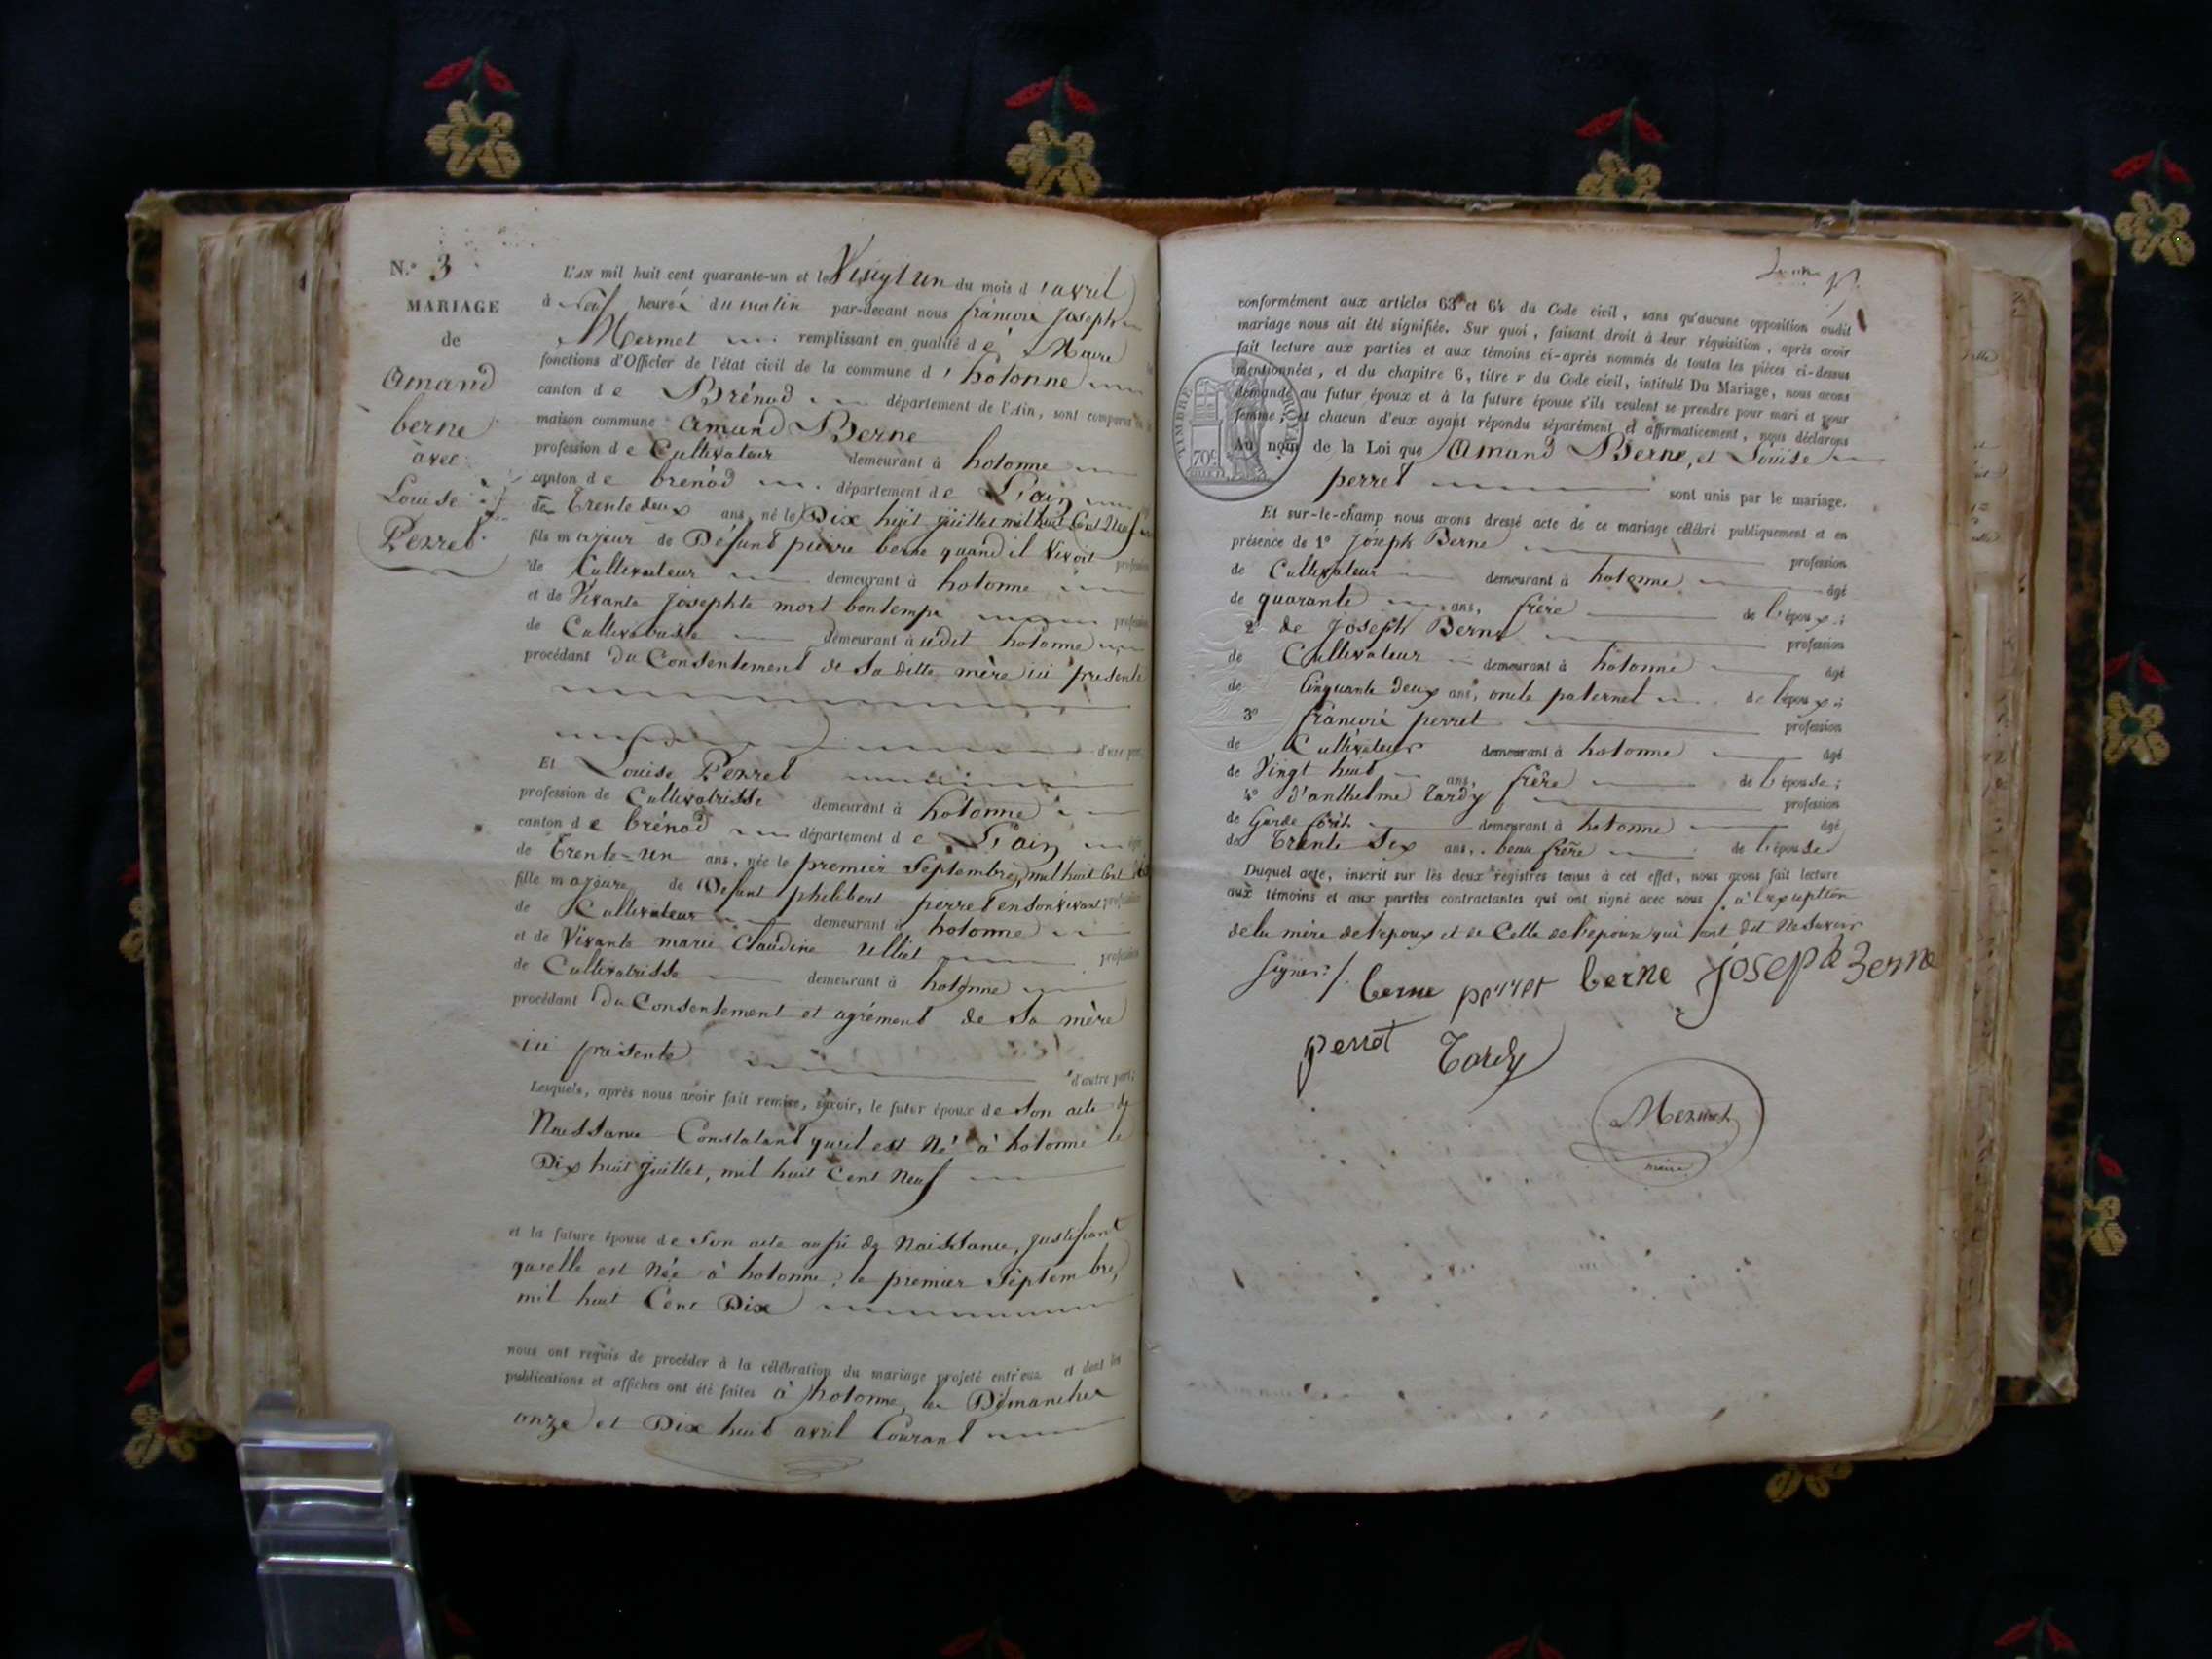 N.° 3
MARIAGE
de
Amand
berne
avec
Louise
Perret
L'AN mil huit cent quarante-un et le Vingt un du mois d'avril
à Neuf heures du matin par-devant nous françois joseph
Mermet remplissant en qualité de Maire
fonctions d'Officier de l'état civil de la commune d'hotonne
canton de Brénod département de l'Ain, sont comparus
maison commune Amand Berne
profession de Cultivateur demeurant à hotonne
canton de brénod département de L'ain
de Trente deux ans, né le Dix huit juillet mil huit Cent Neuf
fils majeur de Défunt pierre berne quand il Vivoit profession
de Cultivateur demeurant à hotonne
et de Vivante Josephte mort bontemps profession
de Cultivatrisse demeurant à udit hotonne
procédant du Consentement de Sa ditte mère ici présente
d'une part,
Et Louise Perret
profession de Cultivatrisse demeurant à hotonne
canton de brénod département de L'ain
de Trente-un ans, née le premier Septembre, mil huit Cent Dix
fille majeure de Defunt philibert perret en son vivant profession
de Cultivateur demeurant à hotonne
et de Vivante marie Claudine Ulliet profession
de Cultivatrisse demeurant à hotonne
procédant du Consentement et agrément de Sa mère
ici présente
d'autre part;
Lesquels, après nous avoir fait remise, savoir, le futur époux de Son acte de
Naissance Constatant qu'il est Né à hotonne le
Dix huit Juillet, mil huit Cent Neuf
et la future épouse de Son acte aussi de Naissance, Justifiant
qu'elle est Née à hotonne, le premier Septembre,
mil huit Cent Dix
nous ont requis de procéder à la célébration du mariage projeté entr'eux et dont les
publications et affiches ont été faites à hotonne, les Dimanches
onze et Dix huit avril Courant
conformément aux articles 63 et 64 du Code civil, sans qu'aucune opposition audit
mariage nous ait été signifiée. Sur quoi, faisant droit à leur réquisition, après avoir
fait lecture aux parties et aux témoins ci-après nommés de toutes les pièces ci-dessus
mentionnées, et du chapitre 6, titre v du Code civil, intitulé Du Mariage, nous avons
demandé au futur époux et à la future épouse s'ils veulent se prendre pour mari et pour
femme; et chacun d'eux ayant répondu séparément et affirmativement, nous déclarons
Au nom de la Loi que Amand Berne, et Louise
perret sont unis par le mariage.
TIMBRE ROYAL
70c.
Et sur-le-champ nous avons dressé acte de ce mariage célébré publiquement et en
présence de 1° Joseph Berne profession
de Cultivateur demeurant à hotonne âgé
de quarante ans, frère de l'époux;
2° de Joseph Berne profession
de Cultivateur demeurant à hotonne âgé
de Cinquante deux ans, oncle paternel de l'époux;
3° françois perret profession
de Cultivateur demeurant à hotonne âgé
de Vingt huit ans, frère de l'épouse;
4° d'anthelme Tardy profession
de Garde forêt demeurant à hotonne âgé
de Trente Six ans, beau frère de l'épouse
Duquel acte, inscrit sur les deux registres tenus à cet effet, nous avons fait lecture
aux témoins et aux parties contractantes qui ont signé avec nous /. à l'exception
de la mère de l'epoux et de Celle de l'épouse qui ont dit Ne Savoir
Signer. /.
berne perret berne joseph Berne
perret Tardy
Mermet
maire